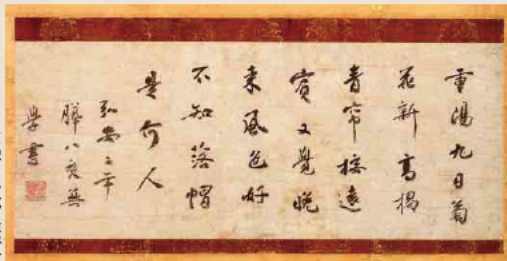 重陽九日菊
花新高揭
青帘接遠
賓又覺晚
來風色好
不知落帽
是何人
弘安二年
臘八夜無
學書